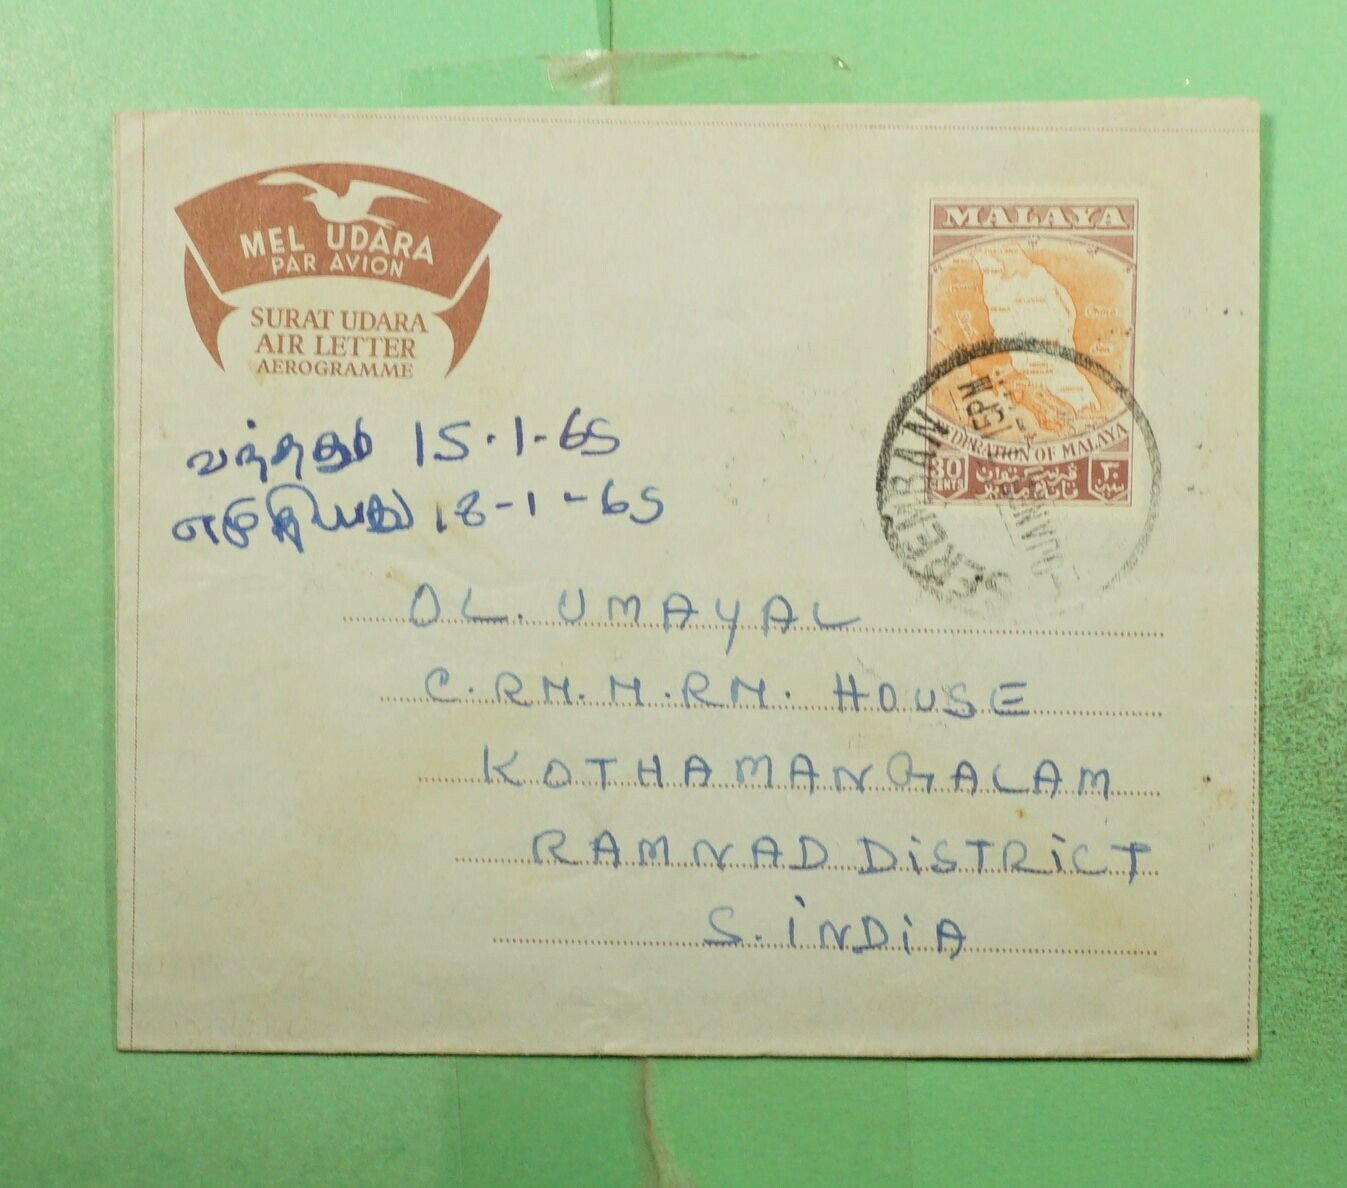 MEL UDARA
PAR AVION
SURAT UDARA
AIR LETTER
AEROGRAMME
MALAYA
FEDERATION OF MALAYA
30
CENTS
٣٠
سين
SEREMBAN
5PM
வந்தது 15-1-65
எழுதியது 18-1-65
OL. UMAYAL
C.RM.M.RM. HOUSE
KOTHAMANGALAM
RAMNAD DISTRICT
S. INDIA